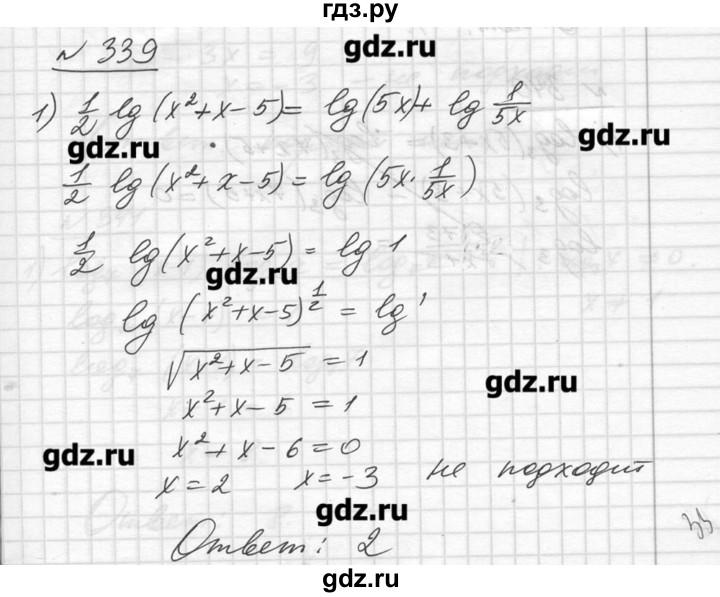 гдз.ру
№ 339
gdz.ru
1) 1/2 lg (x²+x-5) = lg(5x)+ lg 1/5x
gdz.ru
gdz.ru
1/2 lg (x²+x-5) = lg (5x · 1/5x)
1/2 lg(x²+x-5) = lg 1
gdz.ru
lg (x²+x-5)^1/2 = lg 1
√x²+x-5 = 1
gdz.ru
x²+x-5 = 1
gdz.ru
x²+x-6=0
x=2 x=-3 не подходит
gdz.ru
Ответ: 2
gdz.ru